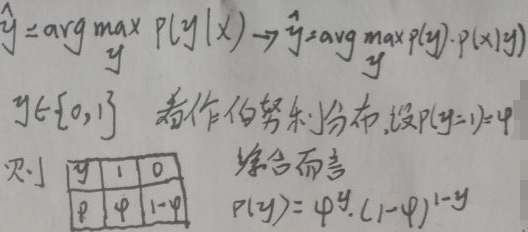 ŷ = arg max_y P(y|x) → ŷ = arg max_y P(y)·P(x|y)
y∈{0,1} 看作伯努利分布,设P(y=1)=φ
则 y 1 0 综合而言
P φ 1-φ P(y)=φ^y·(1-φ)^{1-y}